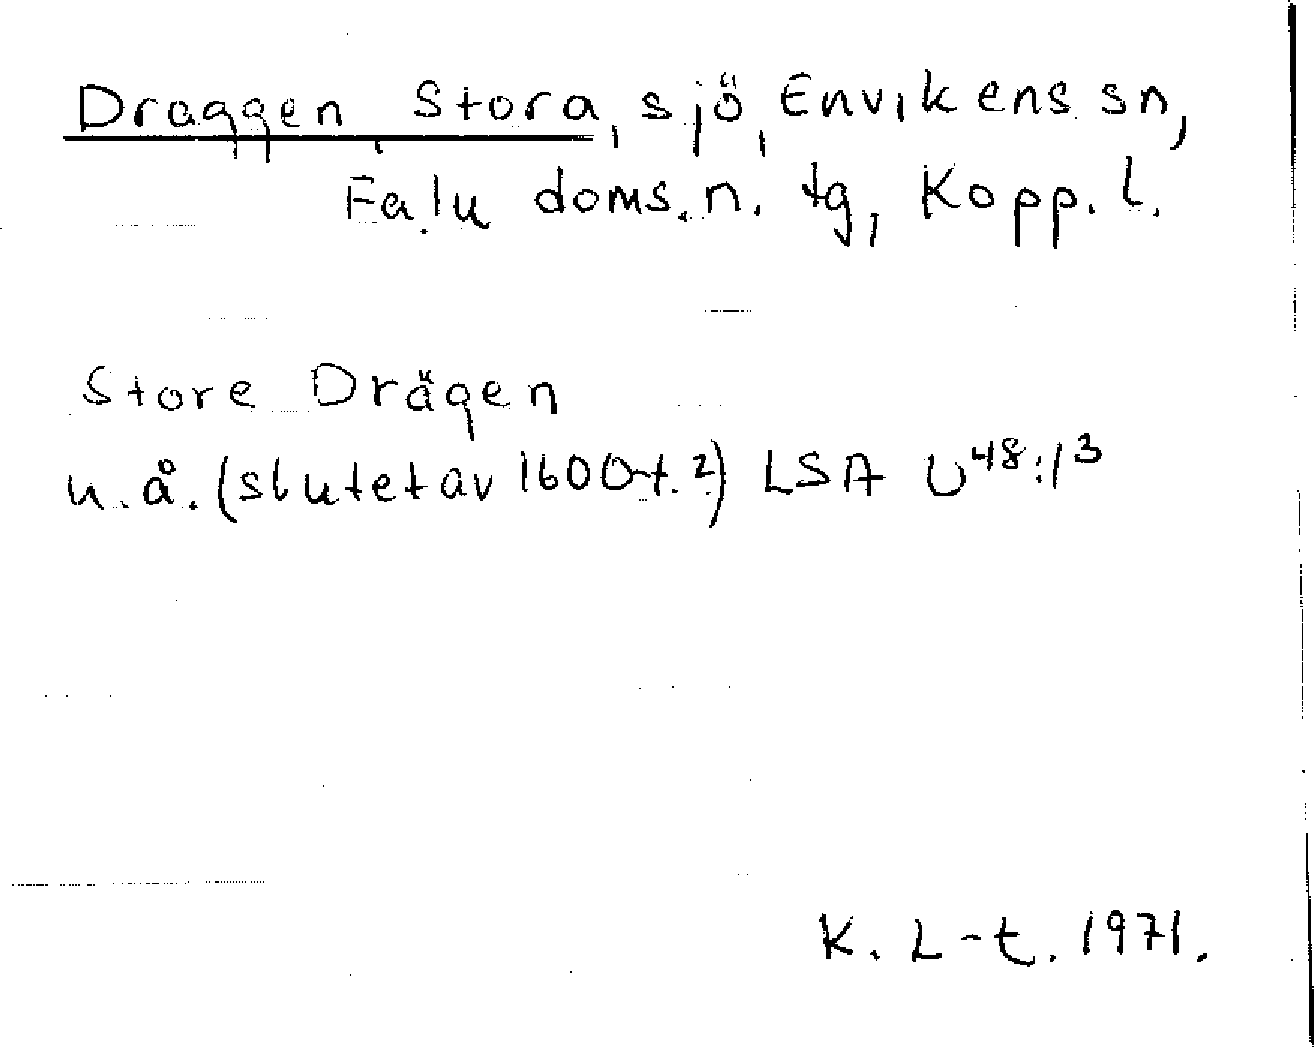 Draggen, Stora, sjö, Envikens sn,
Falu doms.n. tg, Kopp. l.
Store Drägen
u.å. (slutet av 1600-t.?) LSA U48:13
K. L-t. 1971.